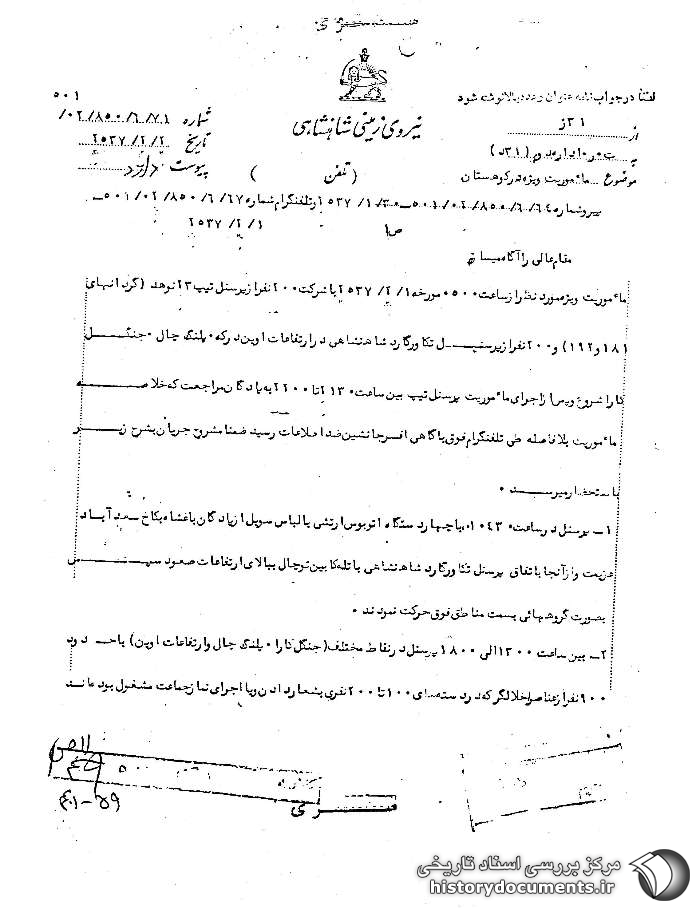 لطفاً در جواب نامه عنوان و عدد بالا نوشته شود
نیروی زمینی شاهنشاهی
۵۰۱
شماره ۰۲/۸۵۰/۶/۷۱/
تاریخ ۲۵۳۷/۲/۲
پیوست دارد
از ۳۱ز
به
اداره دوم (۳۱د)
(تلفن )
موضوع مأموریت ویژه در کوهستان
پیرو شماره ۵۰۱-۰۲/۸۵۰/۶/۶۴-۲۵۳۷/۱/۳۰ و تلفنگرام شماره ۵۰۱/۰۲/۸۵۰/۶/۶۷-
۲۵۳۷/۲/۱
مقام عالی را آگاه میسازد
مأموریت ویژه مورد نظر از ساعت ۰۵۰۰ مورخه ۲۵۳۷/۲/۱ با شرکت ۲۰۰ نفر از پرسنل تیپ ۲۳ نوهد (گردانهای
۱۸۱ و ۱۹۲) و ۲۰۰ نفر از پرسنل تکاور گارد شاهنشاهی در ارتفاعات اوین درکه پلنگ چال جنگل
کارا شروع و پس از اجرای مأموریت پرسنل تیپ بین ساعت ۲۱۳۰ تا ۲۲۰۰ به پادگان مراجعت که خلاصه
مأموریت بلافاصله طی تلفنگرام فوق باگاهی افسر جانشین ضد اطلاعات رسید ضمنا مشروح جریان بشرح زیر
باستحضار میرسد .
۱- پرسنل در ساعت ۰۴۳۰ با چهار دستگاه اتوبوس ارتشی با لباس سویل از پادگان باغشاه بکاخ سعد آباد
عزیمت و از آنجا باتفاق پرسنل تکاور گارد شاهنشاهی با تله کابین توچال ببالای ارتفاعات صعود سپس
بصورت گروههائی بسمت مناطق فوق حرکت نمودند .
۲- بین ساعت ۱۲۰۰ الی ۱۸۰۰ پرسنل در نقاط مختلف (جنگل کارا، پلنگ چال و ارتفاعات اوین) با حدود
۹۰۰ نفر از عناصر اخلالگر که در دسته های ۱۰۰ تا ۲۰۰ نفری بشعار دادن و یا اجرای نماز جماعت مشغول بوده اند
مرکز بررسی اسناد تاریخی
historydocuments.ir